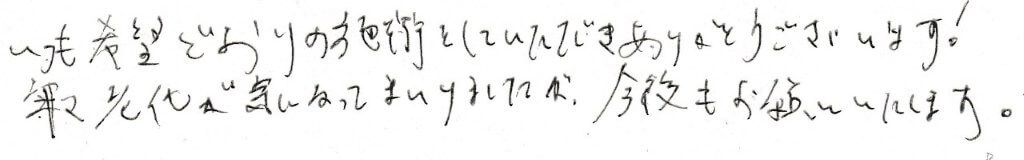 いつも希望どおりの施術をしていただきありがとうございます!
年代が気になってまいりましたが、今後もお願いいたします。